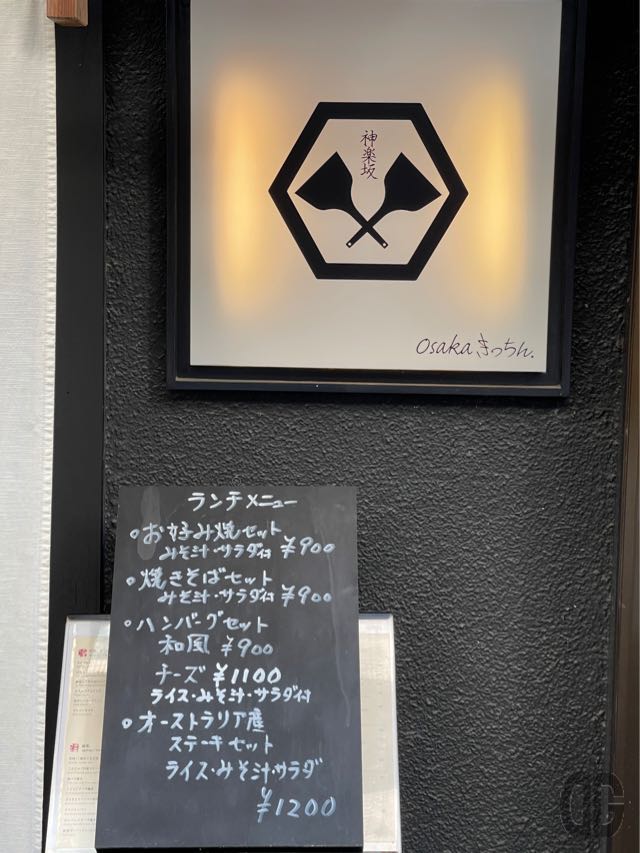 神楽坂
Osaka きっちん.
ランチメニュー
○お好み焼セット
みそ汁・サラダ付 ¥900
○焼きそばセット
みそ汁・サラダ付 ¥900
○ハンバーグセット
和風 ¥900
チーズ ¥1100
ライス・みそ汁・サラダ付
○オーストラリア産
ステーキセット
ライス・みそ汁・サラダ
¥1200